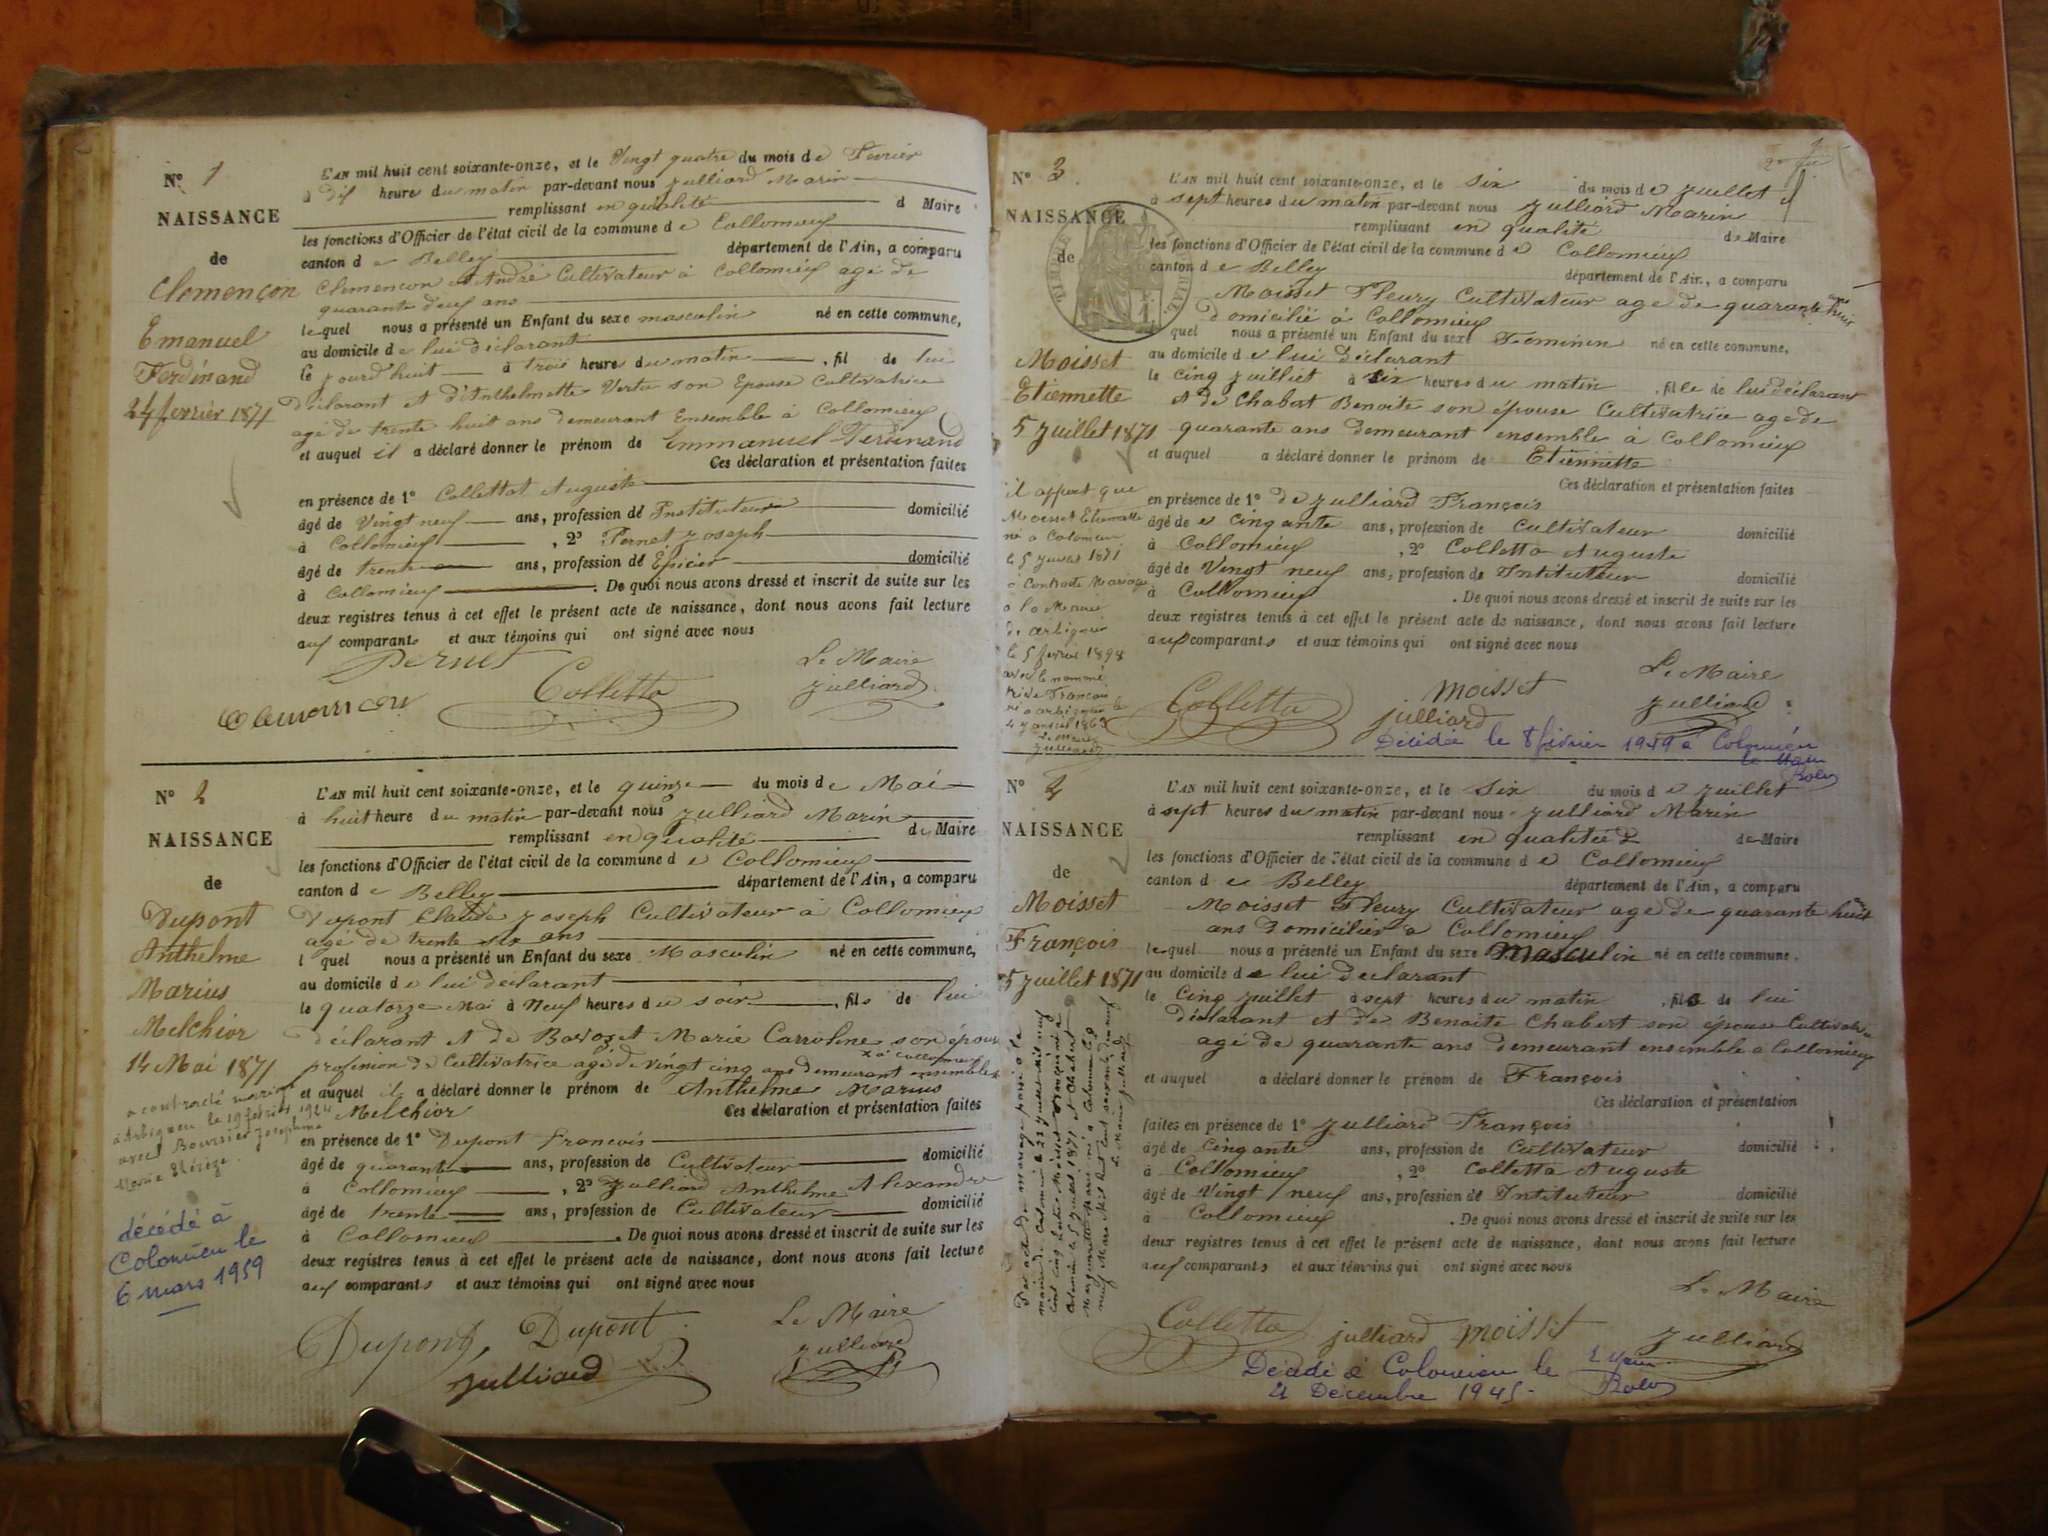 N° 1
NAISSANCE
de
Clemençon
Emanuel
Ferdinand
24 fevrier 1871
L'AN mil huit cent soixante-onze, et le Vingt quatre du mois de Fevrier
à dix heure du matin par-devant nous Julliard Marin
remplissant en qualité d Maire
les fonctions d'Officier de l'état civil de la commune de Collomieu
canton de Belley département de l'Ain, a comparu
Clemencon André Cultivateur à Collomieux agé de
quarante deux ans
lequel nous a présenté un Enfant du sexe masculin né en cette commune,
au domicile de lui déclarant
le jourd'huit à trois heure du matin, fil de lui
déclarant et d'Anthelmette Vertu son Epouse Cultivatrice
agé de trente huit ans demeurant Ensemble à Collomieux
et auquel il a déclaré donner le prénom de Emmanuel Ferdinand
Ces déclaration et présentation faites
en présence de 1° Collettat Auguste
âgé de Vingt neuf ans, profession de Instituteur domicilié
à Collomieux, 2° Pernet Joseph
âgé de trente ans, profession de Épicier domicilié
à Collomieux. De quoi nous avons dressé et inscrit de suite sur les
deux registres tenus à cet effet le présent acte de naissance, dont nous avons fait lecture
aux comparants et aux témoins qui ont signé avec nous
Pernet
Colletta
Le Maire
Julliard
Clemencon
N° 2
NAISSANCE
de
Dupont
Anthelme
Marius
Melchior
14 Mai 1871
a contracté mariage
à Arbignieu le 19 février 1924
avec Boursier Josephine
Marie Thérèze.
décédé à
Colomieu le
6 mars 1959
L'AN mil huit cent soixante-onze, et le quinze du mois de Mai
à huit heure du matin par-devant nous Julliard Marin
remplissant en qualité de Maire
les fonctions d'Officier de l'état civil de la commune de Collomieux
canton de Belley département de l'Ain, a comparu
Dupont Claude Joseph Cultivateur à Collomieux
agé de trente six ans
l quel nous a présenté un Enfant du sexe Masculin né en cette commune,
au domicile de lui déclarant
le quatorze Mai à Neuf heures du soir, fils de lui
déclarant et de Bavozet Marie Carroline son épouse
profession de Cultivatrice agé de vingt cinq ans demeurant ensemble
x à Collomieux
et auquel il a déclaré donner le prénom de Anthelme Marius
Melchior Ces déclaration et présentation faites
en présence de 1° Dupont francois
âgé de quarante ans, profession de Cultivateur domicilié
à Collomieux, 2° Julliard Anthelme Alexandre
âgé de trente ans, profession de Cultivateur domicilié
à Collomieux. De quoi nous avons dressé et inscrit de suite sur les
deux registres tenus à cet effet le présent acte de naissance, dont nous avons fait lecture
aux comparants et aux témoins qui ont signé avec nous
Dupont, Dupont
Julliard
Le Maire
Julliard
N° 3
NAISSANCE
de
Moisset
Etiennette
5 Juillet 1871
il appert que
Moisset Etiennette
né a Colomieu
le 5 Juillet 1871
a Contracté Mariage
a la Mairie
de arbignieu
le 5 fevrier 1898
avec le nommé
François
né a arbignieu le
Le Maire
Julliard
L'AN mil huit cent soixante-onze, et le Six du mois de Juillet
à sept heures du matin par-devant nous Julliard Marin
remplissant en qualité de Maire
les fonctions d'Officier de l'état civil de la commune de Collomieux
canton de Belley département de l'Ain, a comparu
Moisset Fleury Cultivateur agé de quarante huit
ans
domicilié à Collomieux
quel nous a présenté un Enfant du sexe Feminin né en cette commune,
au domicile de lui déclarant
le Cinq Juilliet à six heures du matin, fille de lui déclarant
et de Chabert Benoite son épouse Cultivatrice agé de
quarante ans demeurant ensemble à Collomieux
et auquel a déclaré donner le prénom de Etiennette
Ces déclaration et présentation faites
en présence de 1° de Julliard François
âgé de Cinqante ans, profession de Cultivateur domicilié
à Collomieux, 2° Colletta Auguste
âgé de Vingt neuf ans, profession de Intituteur domicilié
à Collomieux. De quoi nous avons dressé et inscrit de suite sur les
deux registres tenus à cet effet le présent acte de naissance, dont nous avons fait lecture
aux comparants et aux témoins qui ont signé avec nous
Colletta
Moisset
Julliard
Le Maire
Julliard
Décédée le 8 février 1949 à Colomieu
le Maire
N° 4
NAISSANCE
de
Moisset
François
5 Juillet 1871
L'AN mil huit cent soixante-onze, et le Six du mois de Juillet
à sept heures du matin par-devant nous Julliard Marin
remplissant en qualitée de Maire
les fonctions d'Officier de l'état civil de la commune de Collomieux
canton de Belley département de l'Ain, a comparu
Moisset Fleury Cultivateur agé de quarante huit
ans Domicilier a Collomieux
lequel nous a présenté un Enfant du sexe Masculin né en cette commune.
au domicile de lui déclarant
le Cinq Juillet à sept heures du matin, fils de lui
déclarant et de Benoite Chabert son épouse Cultivatrice
agé de quarante ans demeurant ensemble a Collomieux
et auquel a déclaré donner le prénom de François
Ces déclaration et présentation
faites en présence de 1° Julliard François
âgé de Cinqante ans, profession de Cultivateur domicilié
à Collomieux, 2° Colletta Auguste
âgé de Vingt neuf ans, profession de Intituteur domicilié
à Collomieux. De quoi nous avons dressé et inscrit de suite sur les
deux registres tenus à cet effet le présent acte de naissance, dont nous avons fait lecture
aux comparants et aux témoins qui ont signé avec nous
Le Maire
Colletta Julliard Moisset Julliard
Décédé à Colomieu le
Décembre 1945